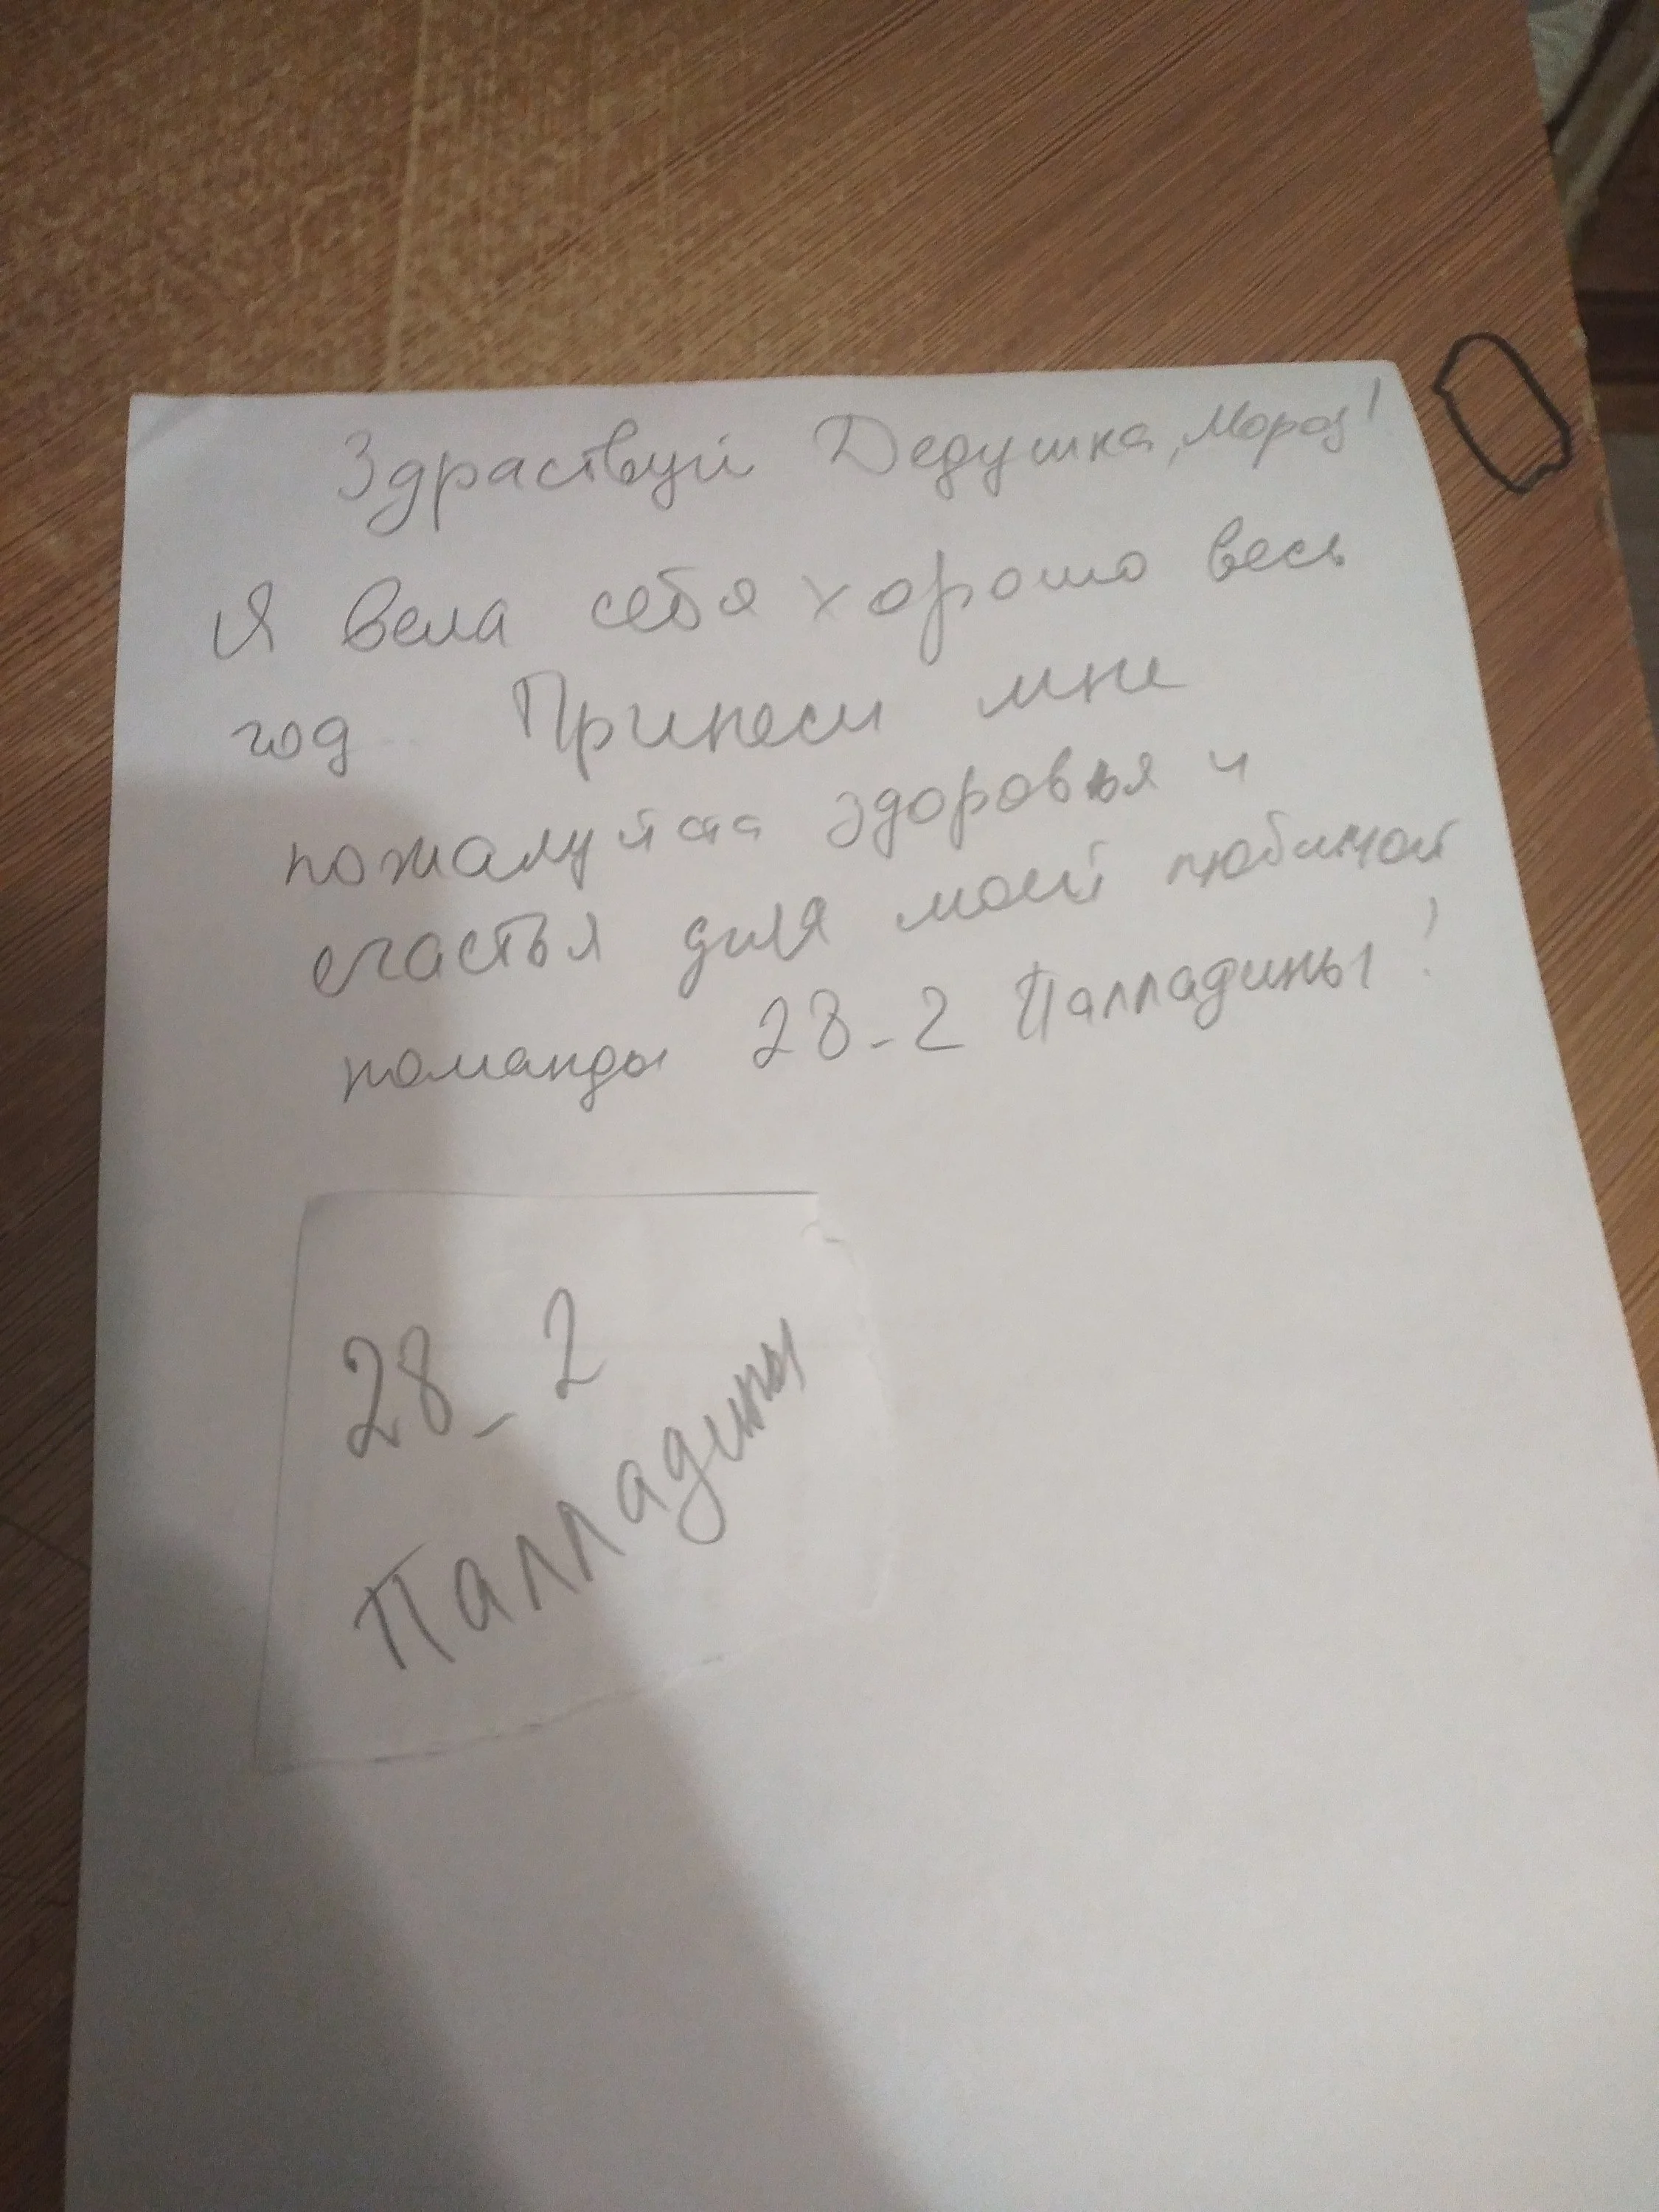 Здраствуй Дедушка, Мороз!
Я вела себя хорошо весь
год Принеси мне
пожалуйста здоровья и
счастья для моей любимой
команды 28-2 Палладины!
28-2
Палладины